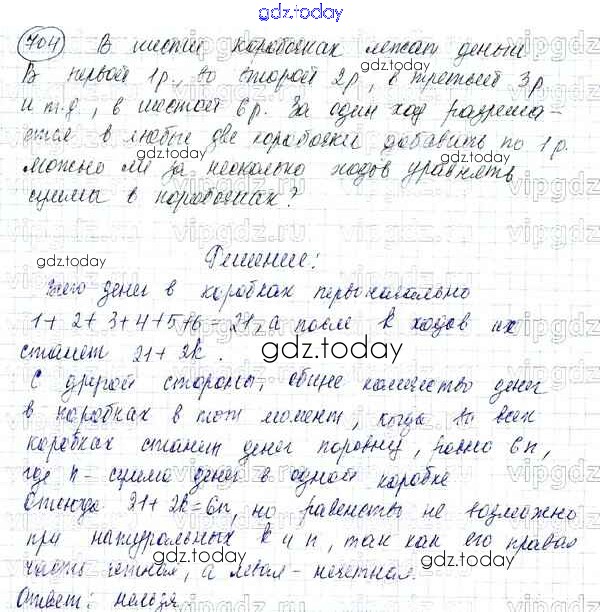 gdz.today
704 В шести коробочках лежат деньги
В первой 1р., во второй 2р, в третьей 3р
gdz.today
и т.д, в шестой 6р. За один ход разреша-
ется в любые две коробочки добавить по 1р.
gdz.today
можно ли за несколько ходов уравнять
суммы в коробочках?
Решение:
gdz.today
Всего денег в коробках первоначально
1+2+3+4+5+6=21, а после k ходов их
станет 21+2k.
gdz.today
С другой стороны, общее количество денег
в коробках в тот момент, когда во всех
коробках станет денег поровну, равно 6n,
где n - сумма денег в одной коробке
gdz.today
Отсюда 21+2k=6n, но равенство не возможно
при натуральных k и n, так как его правая
часть четная, а левая - нечетная.
Ответ: нельзя
gdz.today